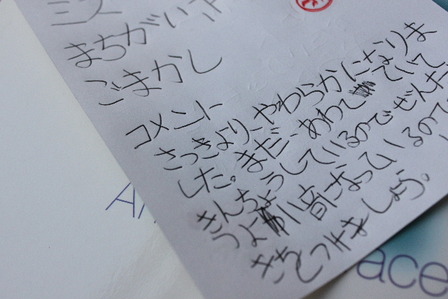 まちがい
ごまかし
コメント
さっきより、やわらかになりま
した。まだ、あわてていて
きんちょうしているのでぜんた
つよが小音なっているの
きをつけましょう。
A
ace